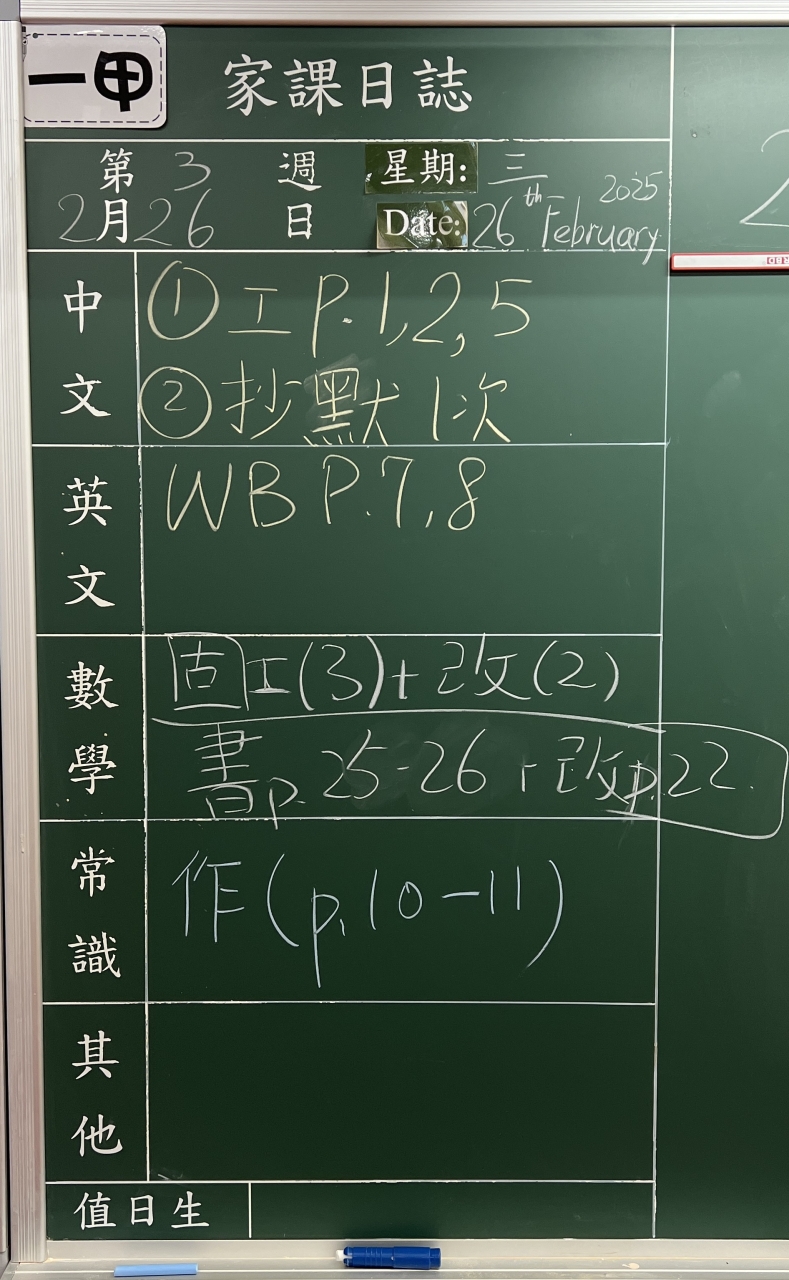 一甲
家課日誌
第 3 週 星期: 三
2月26日 Date: 26th February 2025
中文
① 工 P. 1, 2, 5
② 抄默 1次
英文
WB P. 7, 8
數學
固工(3) + 改(2)
書 p. 25-26 + 改 p. 22.
常識
作 (p. 10-11)
其他
值日生